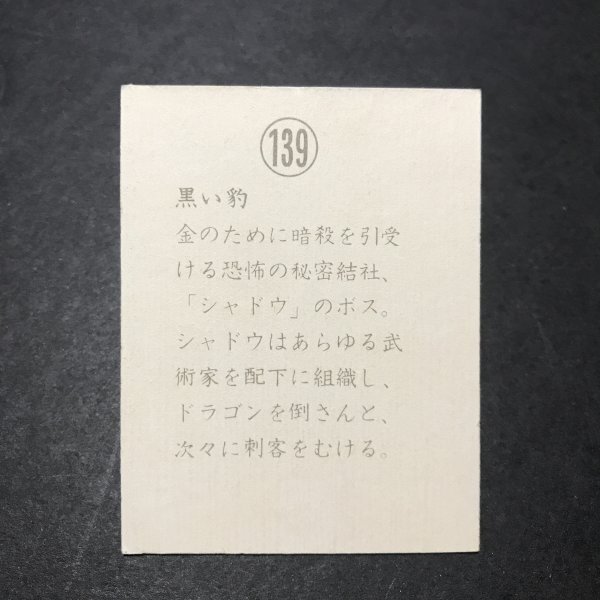 139
黒い豹
金のために暗殺を引受
ける恐怖の秘密結社、
「シャドウ」のボス。
シャドウはあらゆる武
術家を配下に組織し、
ドラゴンを倒さんと、
次々に刺客をむける。